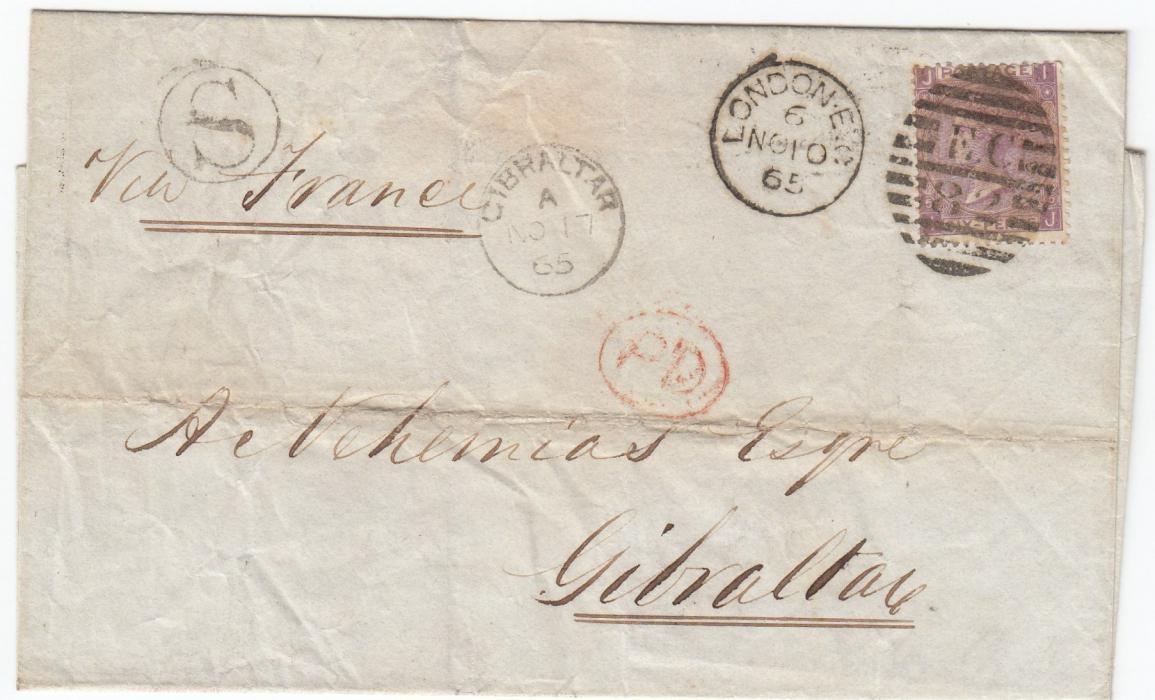 J POSTAGE I
LONDON·E.C
6
NO10
65
EC
8
S
Via France
GIBRALTAR
A
NO 17
65
PD
A Nehemias Esqre
Gibraltar